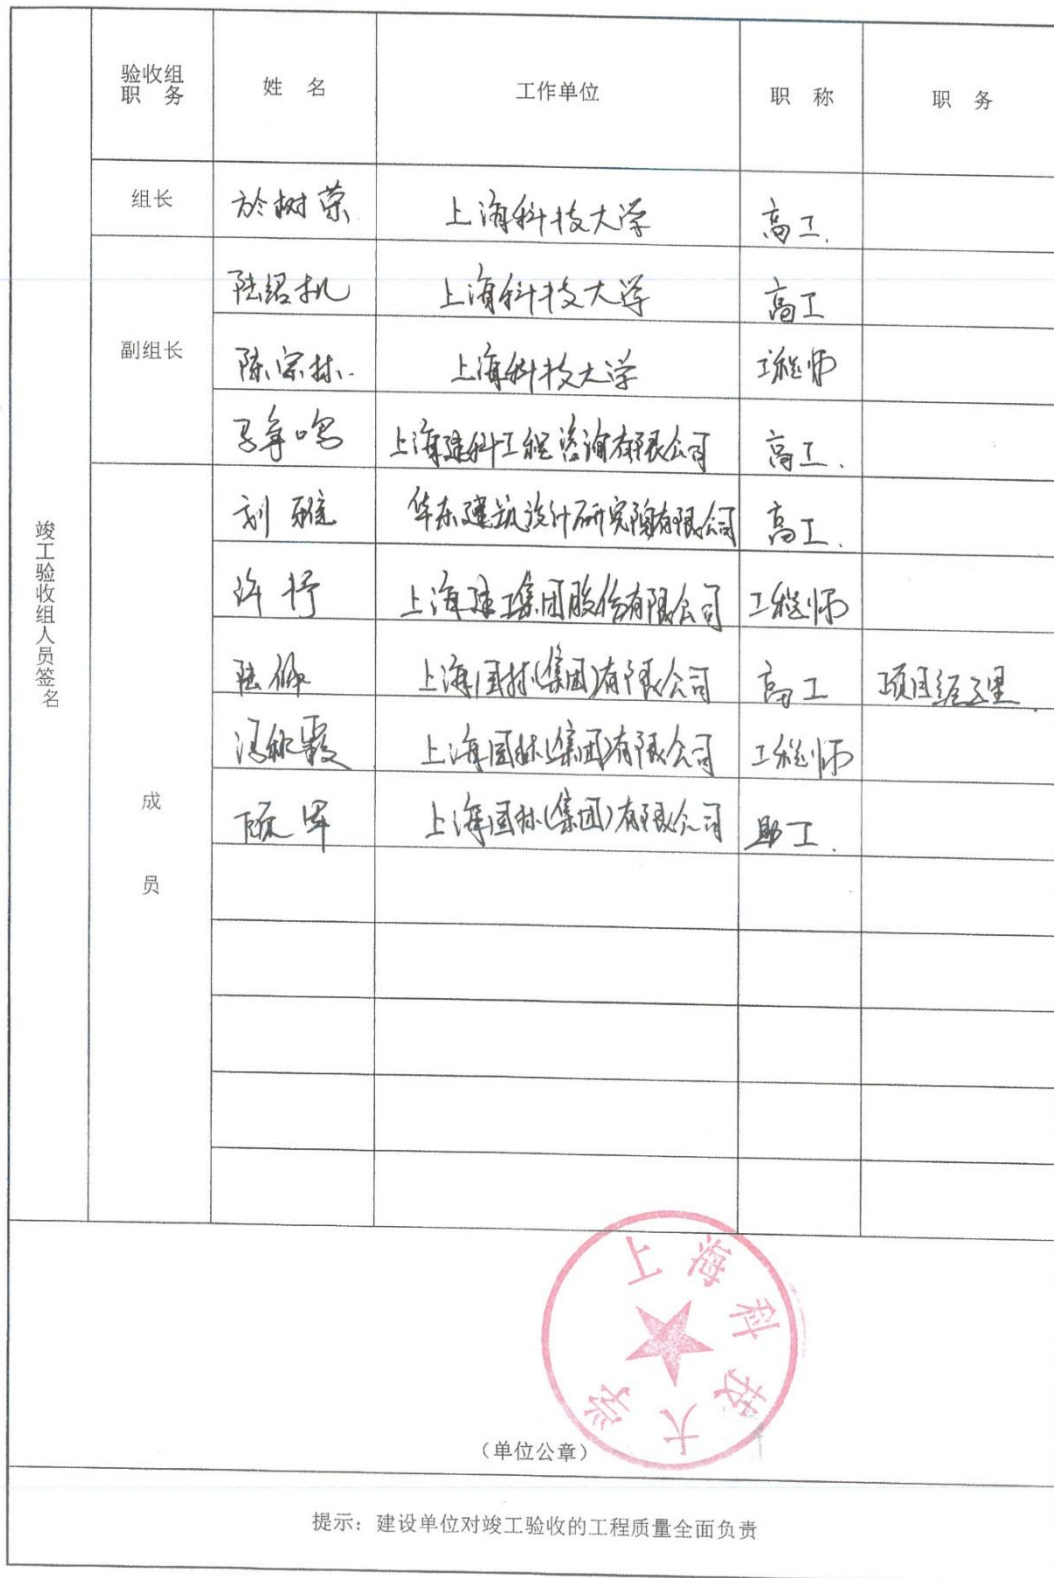 验收组
职 务
姓 名
工作单位
职 称
职 务
组长
於树荣
上海科技大学
高工.
副组长
陆绍机
上海科技大学
高工
陈宗林
上海科技大学
工程师
马争鸣
上海建科工程咨询有限公司
高工.
成员
刘
华东建筑设计研究院有限公司
高工.
许
上海建工集团股份有限公司
工程师
陆
上海园林(集团)有限公司
高工
项目经理.
冯秋霞
上海园林(集团)有限公司
工程师
顾军
上海园林(集团)有限公司
助工.
竣工验收组人员签名
上海科技大学
(单位公章)
提示:建设单位对竣工验收的工程质量全面负责